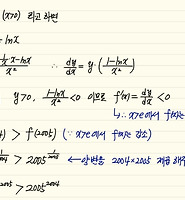 (x>0) 라고 하면
= lnx
(1/x·x-lnx)/x² ∴ dy/dx = y·((1-lnx)/x²)
y>0, (1-lnx)/x² <0 이므로 f'(x)=dy/dx <0
↳∴ x>e에서 f(x)는
> f(2005) (∵ x>e에서 f(x)는 감소)
> 2005^(1/2005) ← 양변을 2004×2005 제곱
> 2005²⁰⁰⁴